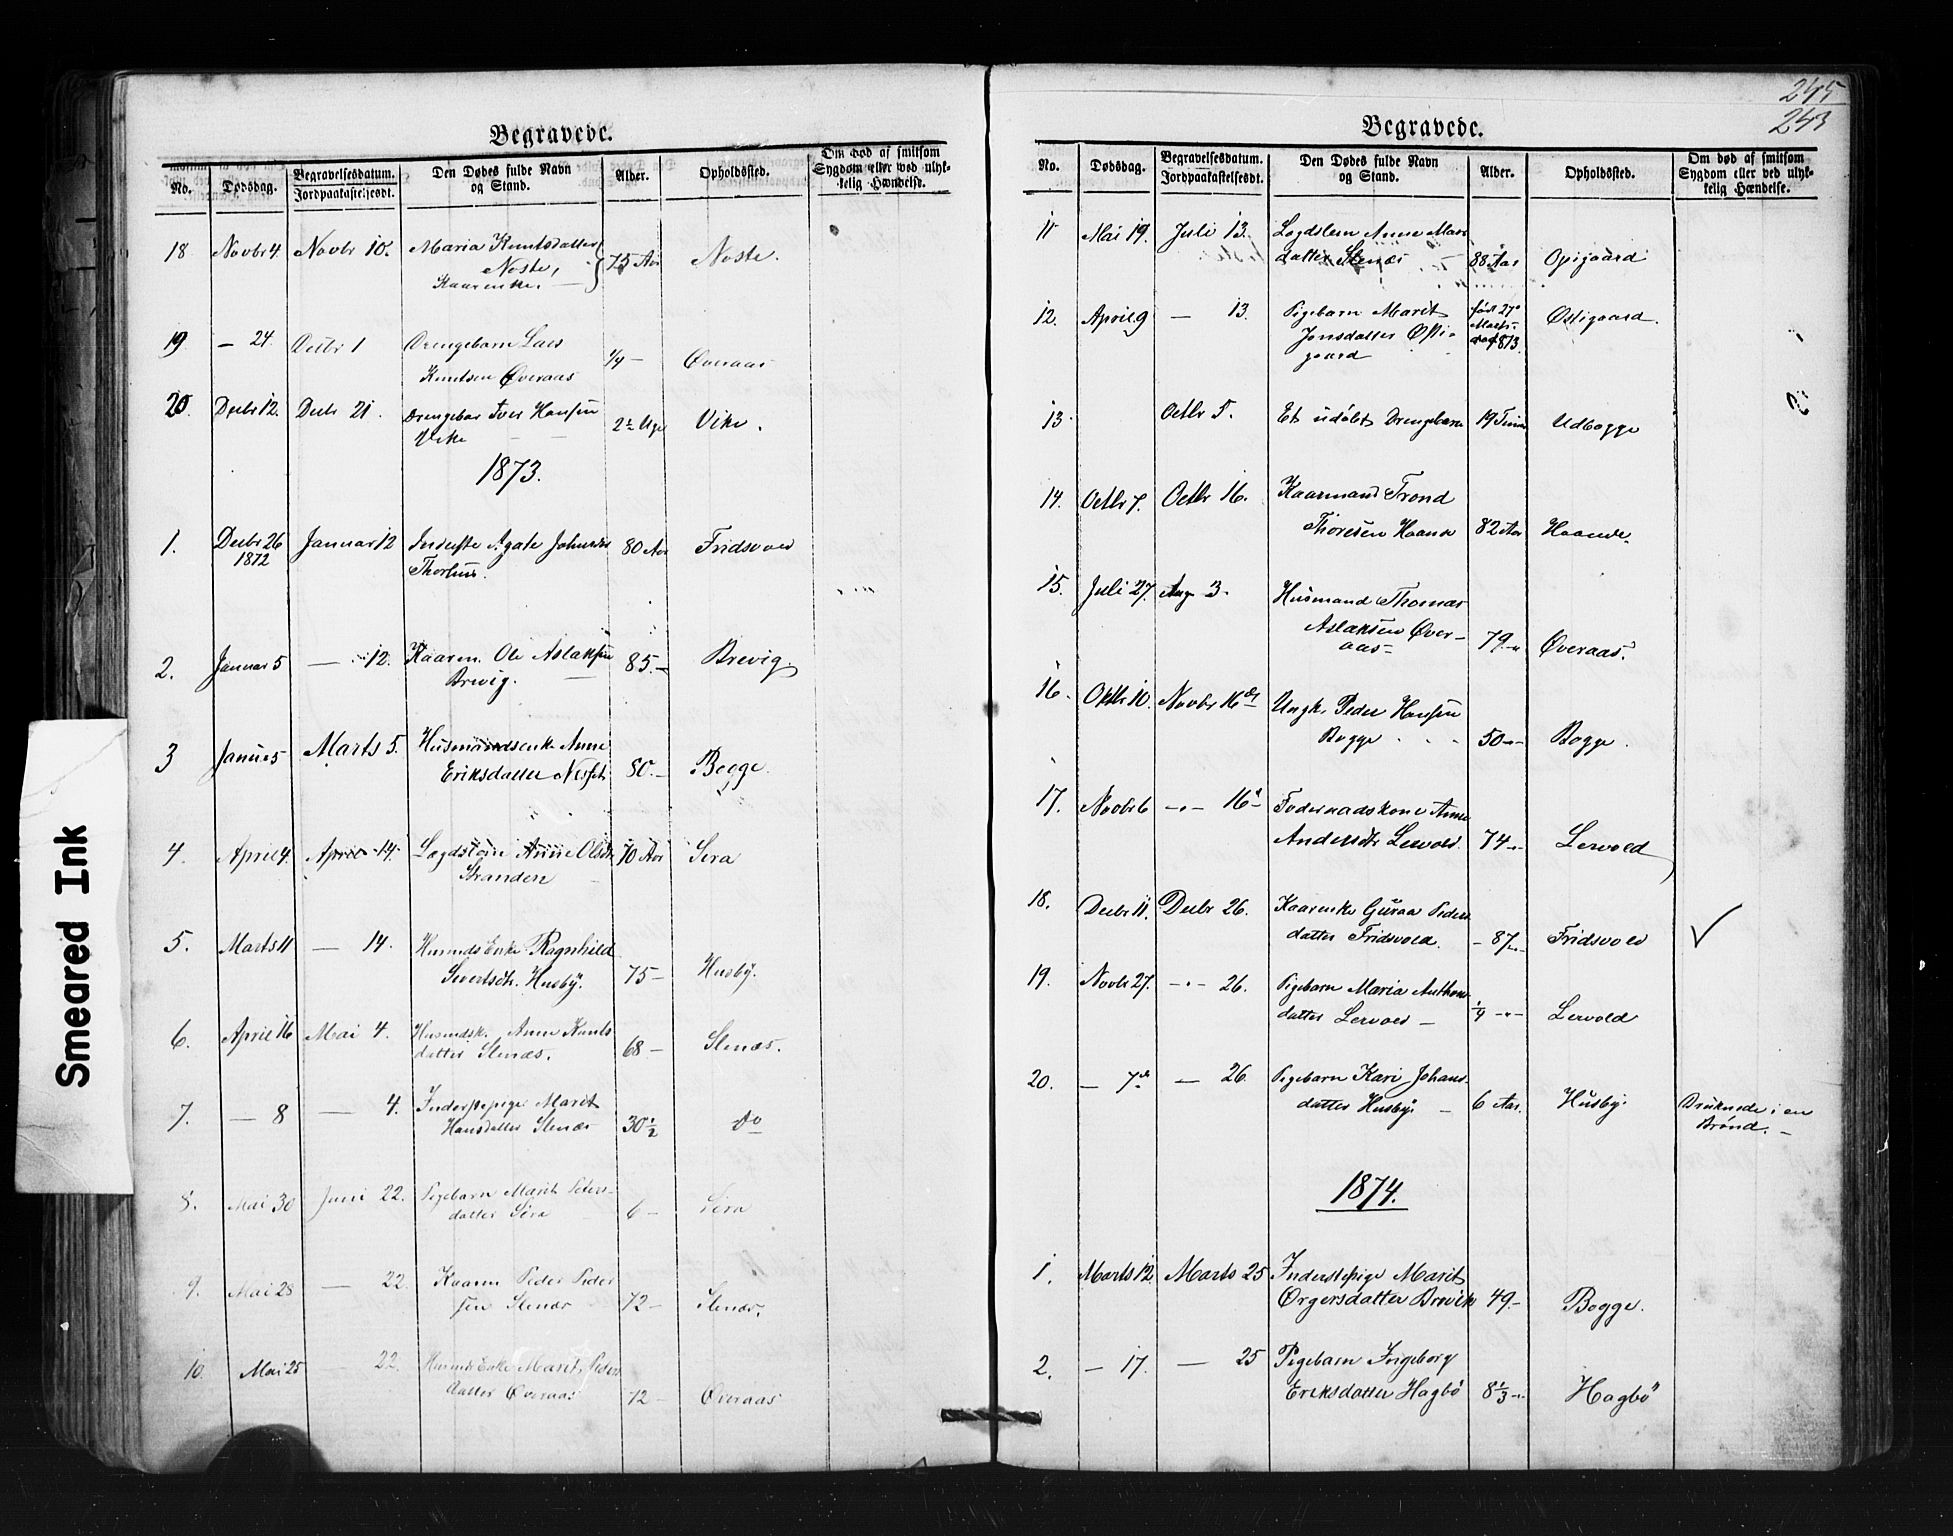 Smeared Ink
Begravede.
No.
Dødsdag.
Begravelsesdatum.
Jordpaakastelsesdt.
Den Dødes fulde Navn
og Stand.
Alder.
Opholdssted.
Om død af smitsom
Sygdom eller ved ulyk-
kelig Hændelse.
18 Novbr 4. Novbr 10. Maria Knutsdatter
Noste, 75 Aar Noste.
Kaarenke.
19 — 24. Decbr 1 Drengebarn Lars
Knutsen Øveraas ¼ — Øveraas
20 Decbr 12. Decbr 21. Drengebar Iver Hansen
Vike 2½ Uge Vike.
1873.
1. Decbr 26 Januar 12 Inderste Agate Johnsdr 80 Aar Fridsvold
1872
2. Januar 5 — 12. Kaarm. Ole Aslaksen
Brevig. 85 — Brevig.
3 Januar 5 Marts 5. Husmandsenke Anne
Eriksdatter Nesset 80. — Bogge.
4. April 4. April 14. Lægdslem Anne Olsdr 70 Aar Sira
Stranden
5. Marts 11 — 14. Husmds Enke Ragnhild
Sivertsdtr. Husby. 75 — Husby.
6. April 16 Mai 4. Husmdsk. Anne Knuts
datter Stenæs. 68 — Stenæs.
7. — 8 — 4. Inderstepige Marit
Hansdatter Stenæs 30½ do
8. Mai 30 Juni 22. Pigebarn Marit Peters-
datter Sira 6 — Sira
9. Mai 28 — 22. Kaarm Peder Peder
sen Stenæs 72 — Stenæs.
10. Mai 25 — 22. Husmds Enke Marit Peders
datter Øveraas 72 — Øveraas
245
243
Begravede.
No.
Dødsdag.
Begravelsesdatum.
Jordpaakastelsesdt.
Den Dødes fulde Navn
og Stand.
Alder.
Opholdssted.
Om død af smitsom
Sygdom eller ved ulyk-
kelig Hændelse.
11 Mai 19. Juli 13. Lægdslem Anne
datter Stenæs 88 Aar Opigaard
12. April 9 — 13. Pigebarn Marit født 27de
Jonsdatter Østi- Marts Østigaard.
gaard 1873.
13 Octbr 5. Et udøbt Drengebarn 19 Timer Utbogge
14. Octbr 7. Octbr 16. Kaarmand Trond
Thoresen Haande 82 Aar Haande.
15. Juli 27. Aug 3. Husmand Thomas
Aslaksen Øver- 79 — Øveraas.
aas
16. Oktbr 10. Novbr 16de Ungk. Peder Hansen
Bogge 50 — Bogge.
17. Novbr 6 — 16 Foderaadskone Anne
Andersdtr Lervold 74 — Lervold
18. Decbr 11. Decbr 26. Kaarenke Guroa Peders
datter Fridsvold. — 87 — Fridsvold
19. Novbr 27. — 26. Pigebarn Maria Anthons
datter Lervold — ¼ — Lervold
20. — 7de — 26. Pigebarn Kari Johans-
datter Husby. — 6 Aar. Husby. Druknede i en
Brønd. —
1874.
1. Marts 12. Marts 25 Inderstepige Marit
Ørgersdatter Brevik 49 — Bogge.
2. — 17. — 25 Pigebarn Ingeborg
Eriksdatter Hagbø 8⅓ — Hagbø